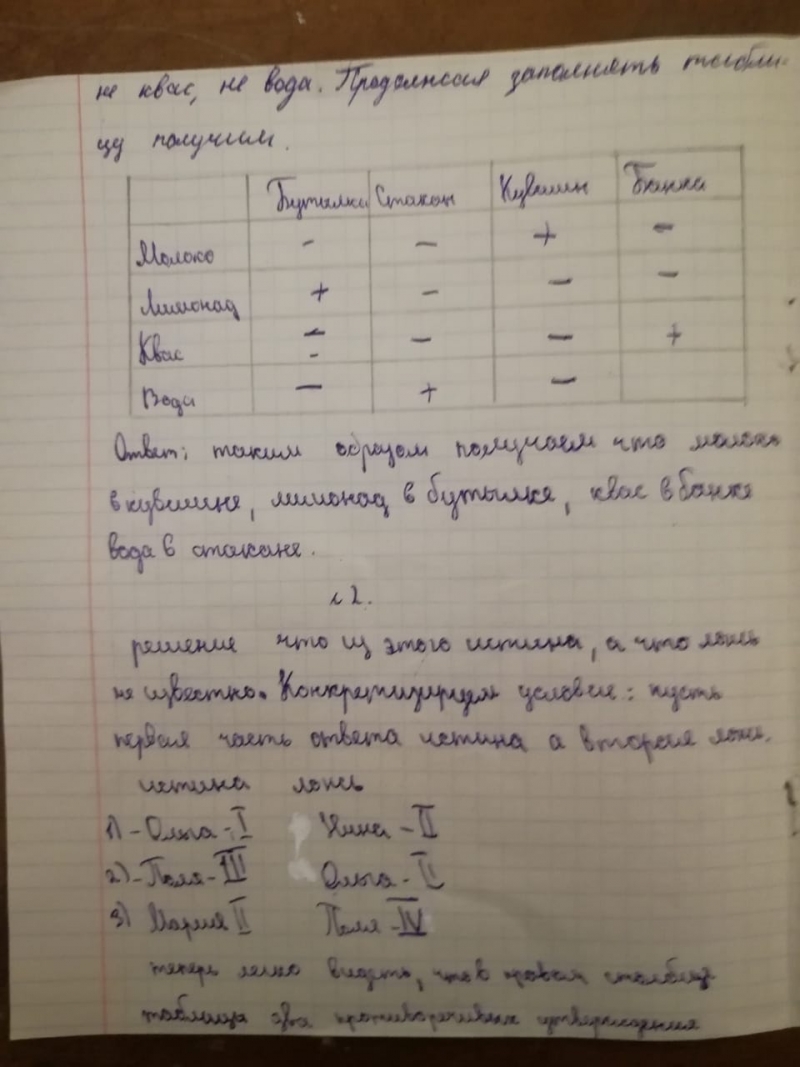 не квас, не вода. Продолжая заполнять табли-
цу получим.
Бутылка Стакан Кувшин Банка
Молоко - - + -
Лимонад + - - -
Квас - - - - +
Вода - + -
Ответ: таким образом получаем что молоко
в кувшине, лимонад в бутылке, квас в банке
вода в стакане.
№2.
решение что из этого истина, а что ложь
не известно. Конкретизируем условие: пусть
первая часть ответа истина а вторая ложь.
истина ложь
1) - Ольга - I Нина - II
2) - Поля - III Ольга - II
3) Мария II Поля - IV
теперь легко видеть, что в правом столбце
таблица два противоречивых утверждения